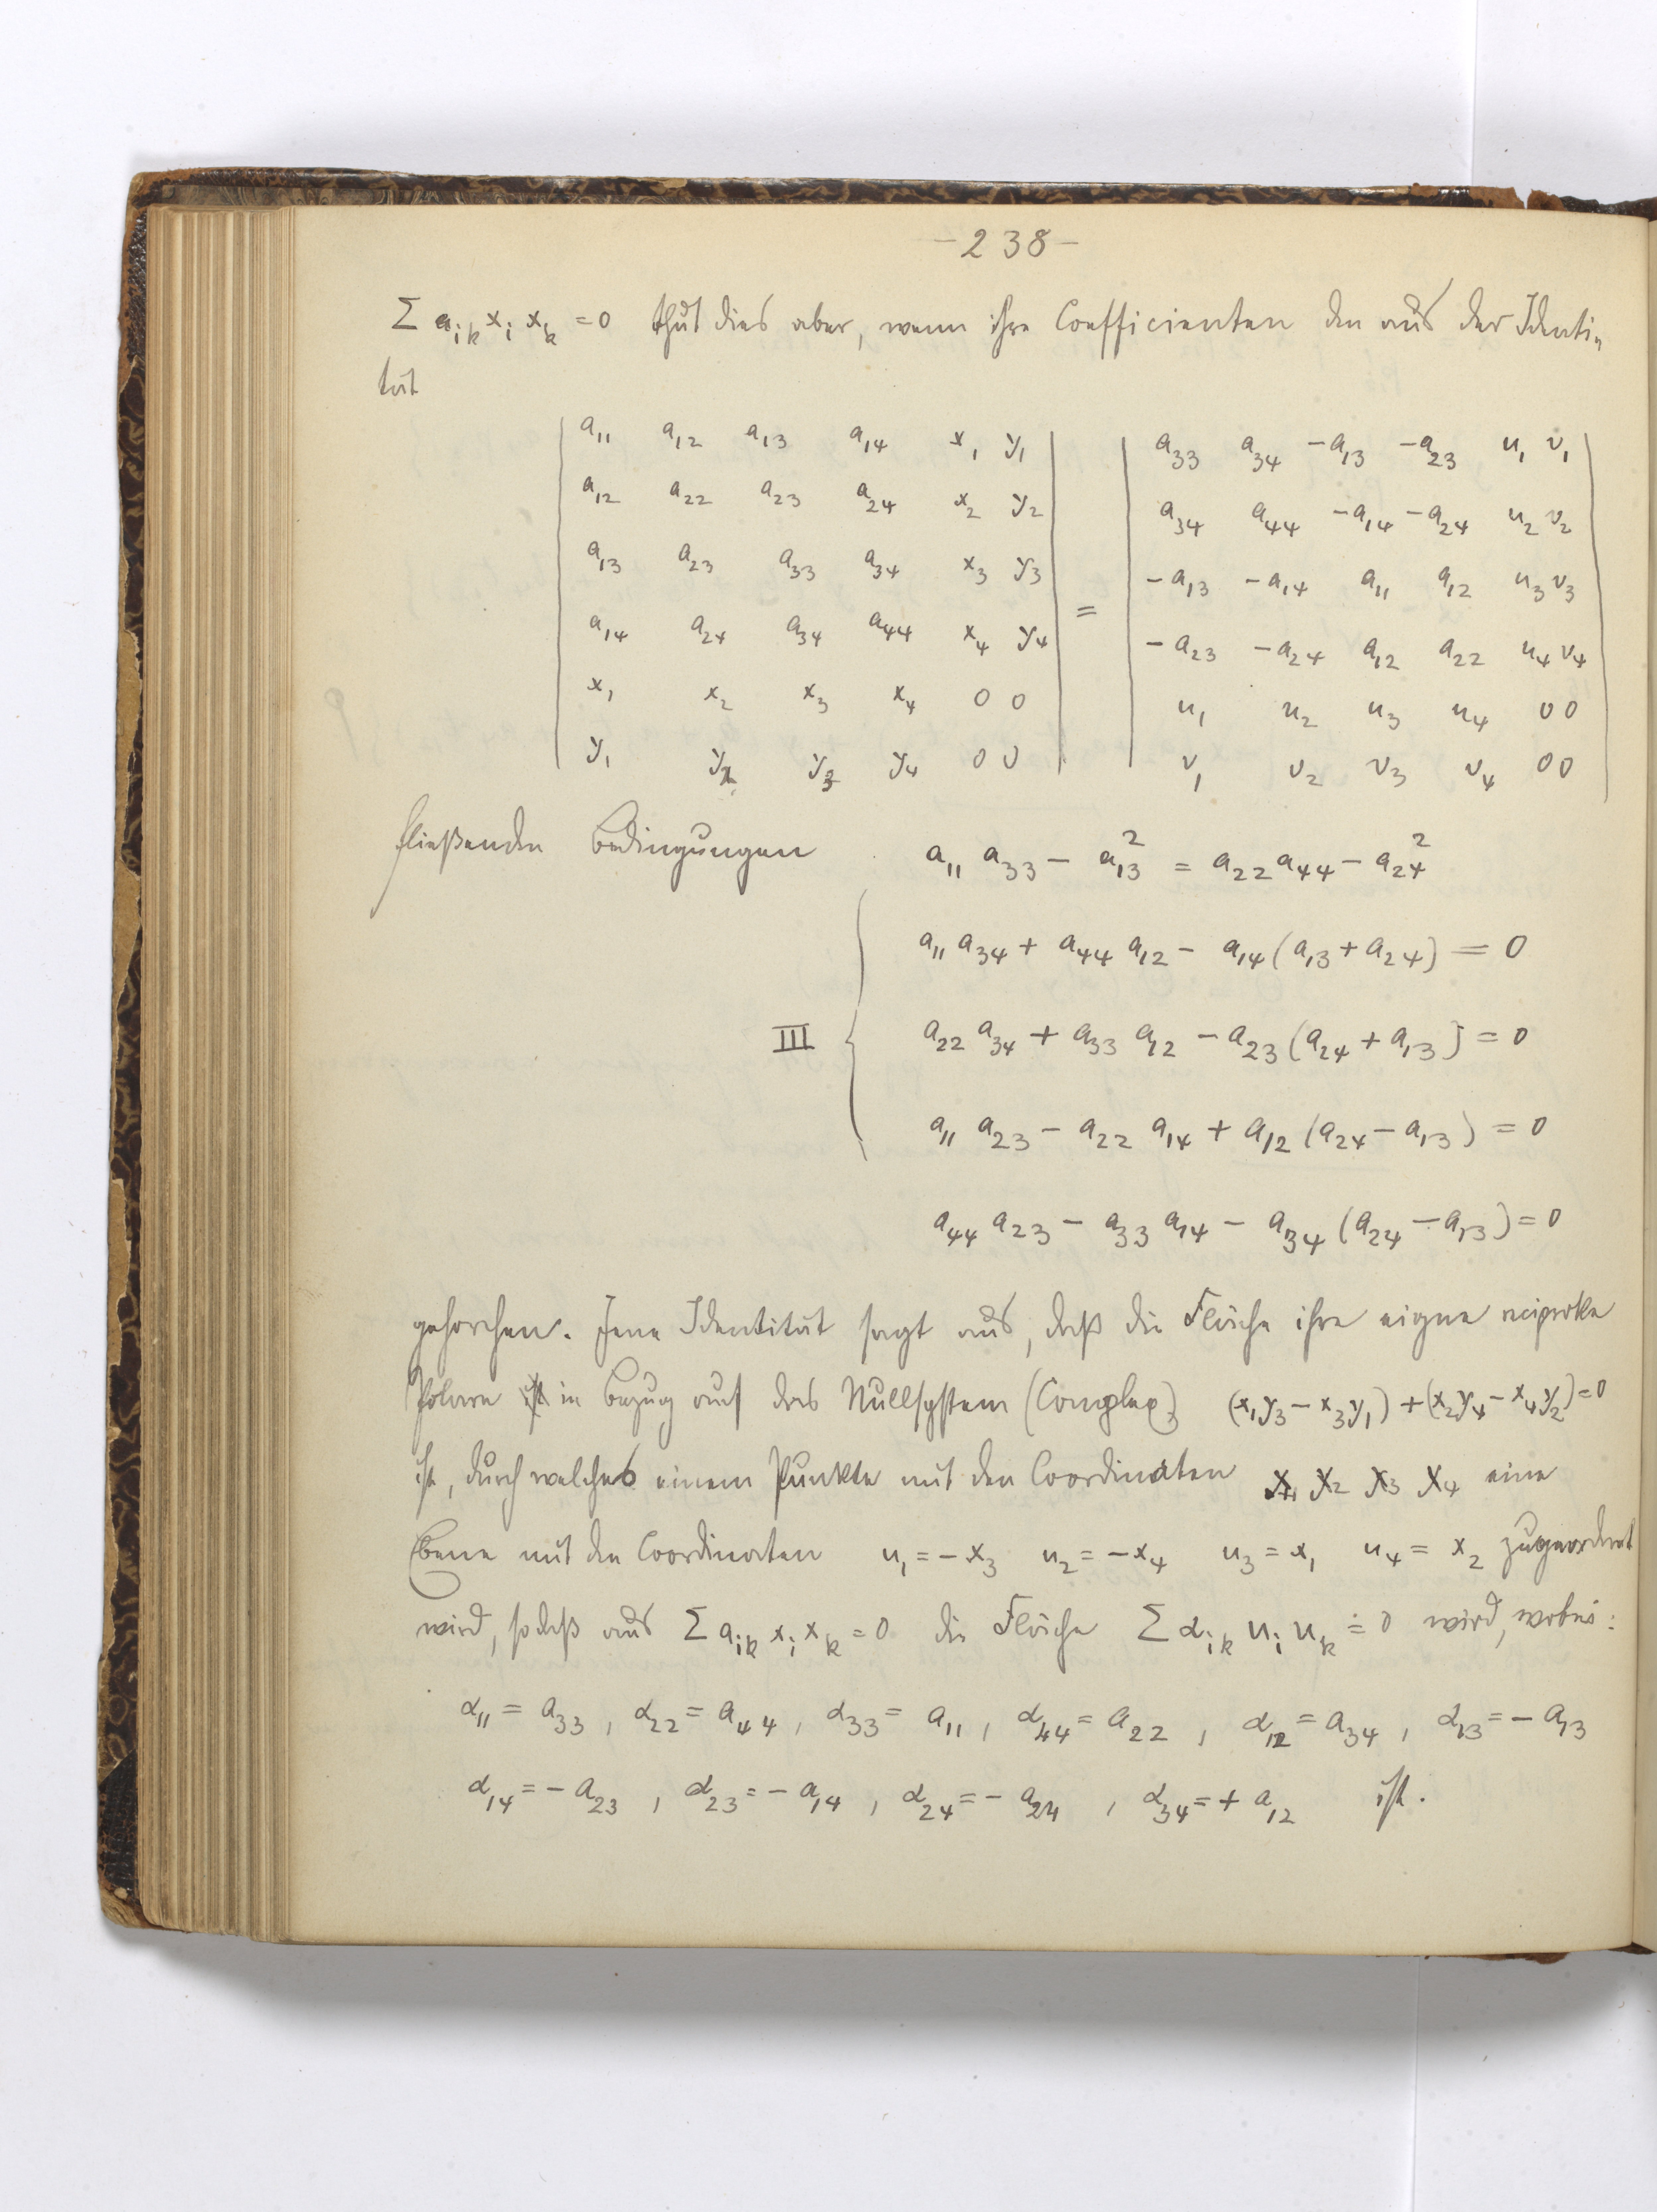 -238-
Σ aᵢₖ xᵢ xₖ = 0 thut dies aber, wenn ihre Coefficienten den aus der Identi-
tät
| a₁₁ a₁₂ a₁₃ a₁₄ x₁ y₁ | | a₃₃ a₃₄ -a₁₃ -a₂₃ u₁ v₁ |
| a₁₂ a₂₂ a₂₃ a₂₄ x₂ y₂ | | a₃₄ a₄₄ -a₁₄ -a₂₄ u₂ v₂ |
| a₁₃ a₂₃ a₃₃ a₃₄ x₃ y₃ | | -a₁₃ -a₁₄ a₁₁ a₁₂ u₃ v₃ |
| a₁₄ a₂₄ a₃₄ a₄₄ x₄ y₄ | = | -a₂₃ -a₂₄ a₁₂ a₂₂ u₄ v₄ |
| x₁ x₂ x₃ x₄ 0 0 | | u₁ u₂ u₃ u₄ 0 0 |
| y₁ y₂ y₃ y₄ 0 0 | | v₁ v₂ v₃ v₄ 0 0 |
fließenden Bedingungen a₁₁ a₃₃ - a₁₃² = a₂₂ a₄₄ - a₂₄²
a₁₁ a₃₄ + a₄₄ a₁₂ - a₁₄ (a₁₃ + a₂₄) = 0
III { a₂₂ a₃₄ + a₃₃ a₁₂ - a₂₃ (a₂₄ + a₁₃) = 0
a₁₁ a₂₃ - a₂₂ a₁₄ + a₁₂ (a₂₄ - a₁₃) = 0
a₄₄ a₂₃ - a₃₃ a₁₄ - a₃₄ (a₂₄ - a₁₃) = 0
gehorchen. Jene Identität sagt aus, daß die Fläche ihre eigne reciproke
Polare ist in Bezug auf das Nullsystem (Complex) (x₁y₃ - x₃y₁) + (x₂y₄ - x₄y₂) = 0
ist, durch welches einem Punkte mit den Coordinaten x₁ x₂ x₃ x₄ eine
Ebene mit den Coordinaten u₁ = -x₃ u₂ = -x₄ u₃ = x₁ u₄ = x₂ zugeordnet
wird, sodaß aus Σ aᵢₖ xᵢ xₖ = 0 die Fläche Σ αᵢₖ uᵢ uₖ = 0 wird, wobei:
α₁₁ = a₃₃, α₂₂ = a₄₄, α₃₃ = a₁₁, α₄₄ = a₂₂, α₁₂ = a₃₄, α₁₃ = -a₁₃
α₁₄ = -a₂₃, α₂₃ = -a₁₄, α₂₄ = -a₂₄, α₃₄ = +a₁₂ ist.